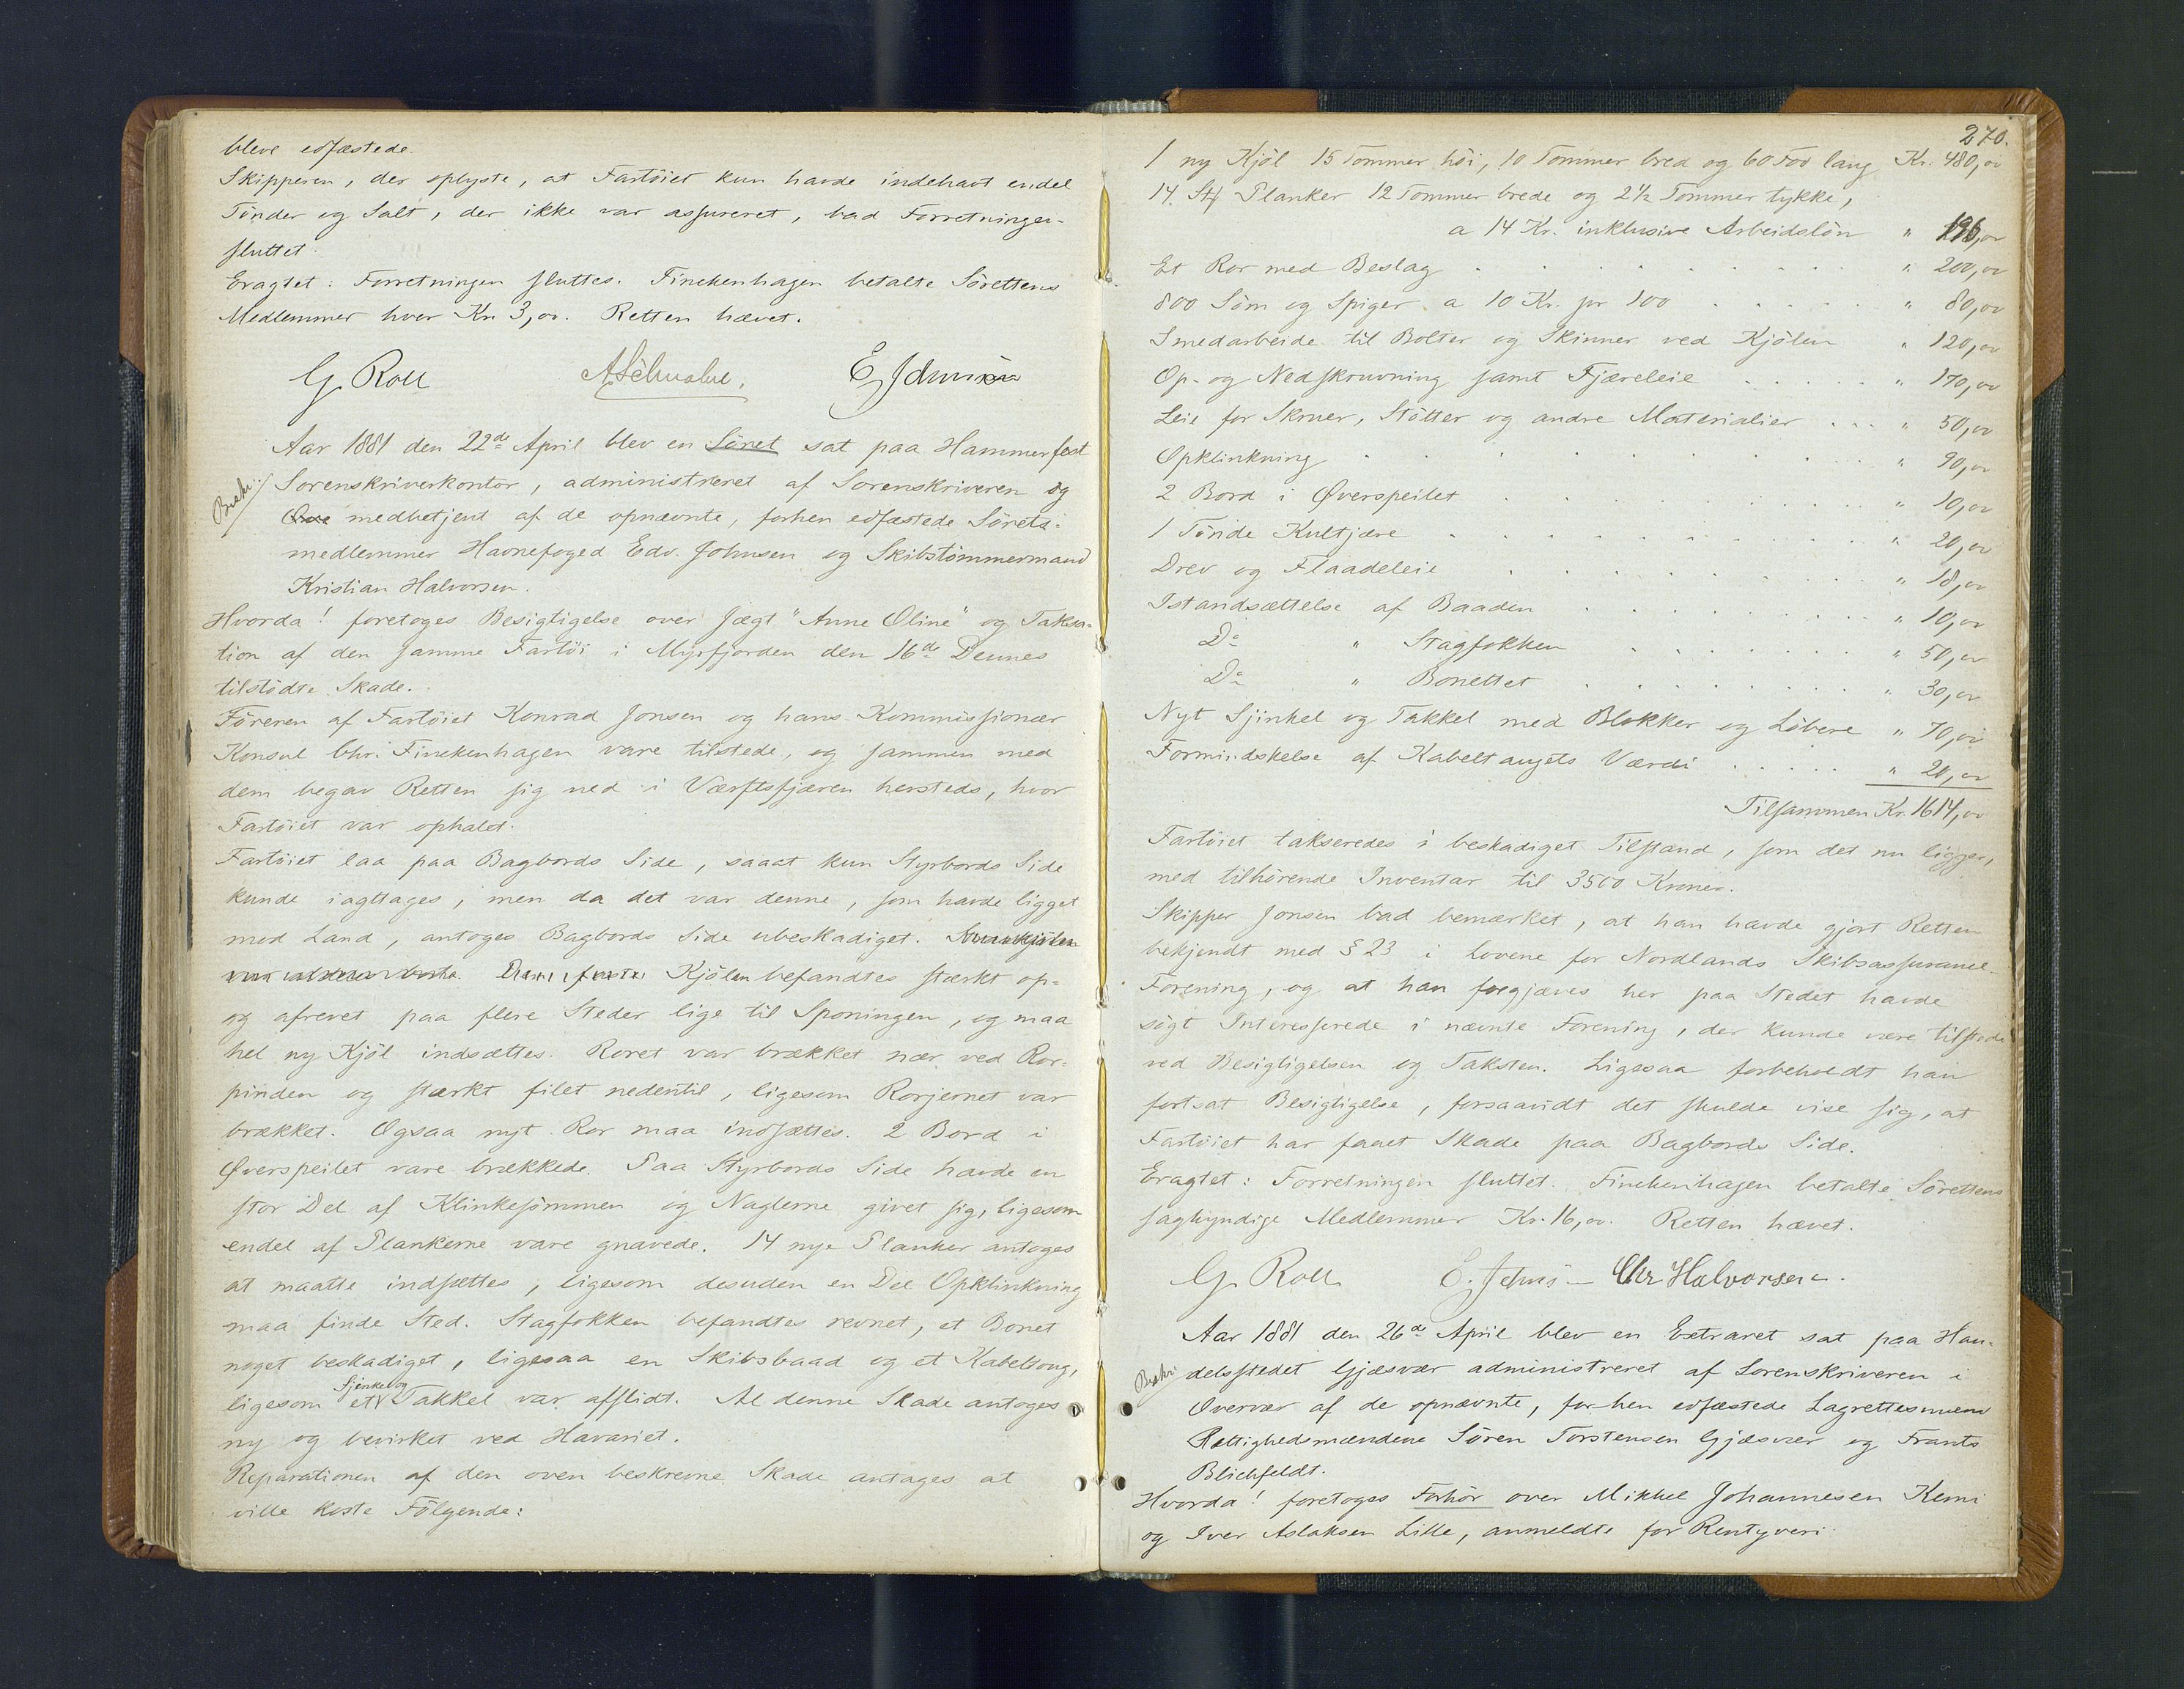 bleve edfæstede.
Skipperen, der oplyste, at Fartöiet kun havde indehavt endel
Tönder og Salt, der ikke var assureret, bad Forretningen
sluttet.
Eragtet: Forretningen sluttes. Finckenhagen betalte Sörettens
Medlemmer hver Kr. 3,00. Retten hævet.
G. Roll
Aar 1881 den 22de April blev en Söret sat paa Hammerfest
Sorenskriverkontor, administreret af Sorenskriveren og
medbetjent af de opnævnte, forhen edfæstede Sörets-
medlemmer Havnefoged Edv. Johnsen og Skibstömmermand
Kristian Halvorsen.
Hvorda! foretoges Besigtigelse over Jægt "Anne Oline" og Taksa-
tion af den samme Fartöi i Myrfjorden den 16de Dennes
tilstödte Skade.
Föreren af Fartöiet Konrad Jonsen og hans Kommissionær
Konsul Chr. Finckenhagen vare tilstede, og sammen med
dem begav Retten sig ned i Værftsfjæren hersteds, hvor
Fartöiet var ophalet.
Fartöiet laa paa Bagbords Side, saaat kun Styrbords Side
kunde iagttages, men da det var denne, som havde ligget
mod Land, antoges Bagbords Side ubeskadiget.
Kjölen befandtes stærkt op-
og afrevet paa flere Steder lige til Sponingen, og maa
hel ny Kjöl indsættes. Roret var brækket nær ved Ror-
pinden og stærkt filet nedentil, ligesom Rorjernet var
brækket. Ogsaa nyt Ror maa indsættes. 2 Bord i
Øverspeilet vare brækkede. Paa Styrbords Side havde en
stor Del af Klinkesömmen og Naglerne givet sig, ligesom
endel af Plankerne vare gnavede. 14 nye Planker antoges
at maatte indsættes, ligesom desuden en Del Opklinkning
maa finde Sted. Stagfokken befandtes revnet, et Bonet
noget beskadiget, ligesaa en Skibsbaad og et Kabeltoug,
ligesom et Sjinkel og Takkel var afslidt. Al denne Skade antoges
ny og bevirket ved Havariet.
Reparationen af den oven beskrevne Skade antages at
ville koste Fölgende:
270.
1 ny Kjöl 15 Tommer höi, 10 Tommer bred og 60 Fod lang Kr. 480,00
14 Stk Planker 12 Tommer brede og 2½ Tommer tykke,
a 14 Kr. inklusive Arbeidslön " 196,00
Et Ror med Beslag " 200,00
800 Söm og Spiger a 10 Kr. pr 100 " 80,00
Smedarbeide til Bolter og Skinner ved Kjölen " 120,00
Op- og Nedskruvning samt Fjæreleie " 170,00
Leie for Skruer, Stötter og andre Materialier " 50,00
Opklinkning " 90,00
2 Bord i Øverspeilet " 10,00
1 Tönde Kultjære " 20,00
Drev og Flaadeleie " 18,00
Istandsættelse af Baaden " 10,00
Do " Stagfokken " 50,00
Do " Bonettet " 30,00
Nyt Sjinkel og Takkel med Blokker og Löbere " 70,00
Formindskelse af Kabeltaugets Værdi " 20,00
Tilsammen Kr. 1614,00
Fartöiet takseredes i beskadiget Tilstand, som det nu ligger,
med tilhörende Inventar til 3500 Kroner.
Skipper Jonsen bad bemærket, at han havde gjort Retten
bekjendt med § 23 i Lovene for Nordlands Skibsassurance-
Forening, og at han forgjæves her paa Stedet havde
sögt Interesserede i nævnte Forening, der kunde være tilstede
ved Besigtigelsen og Taksten. Ligesaa forbeholdt han
fortsat Besigtigelse, forsaavidt det skulde vise sig, at
Fartöiet har faaet Skade paa Bagbords Side.
Eragtet: Forretningen sluttet. Finckenhagen betalte Sörettens
sagkyndige Medlemmer Kr. 16,00. Retten hævet.
G. Roll Chr Halvorsen.
Aar 1881 den 26de April blev en Extraret sat paa Han-
delsstedet Gjæsvær administreret af Sorenskriveren i
Overvær af de opnævnte, forhen edfæstede Lagrettesmænd
Rettighedsmændene Sören Torstensen Gjæsvær og Frants
Blichfeldt.
Hvorda! foretoges Forhör over Mikkel Johannesen Kemi
og Iver Aslaksen Lille, anmeldte for Rentyveri